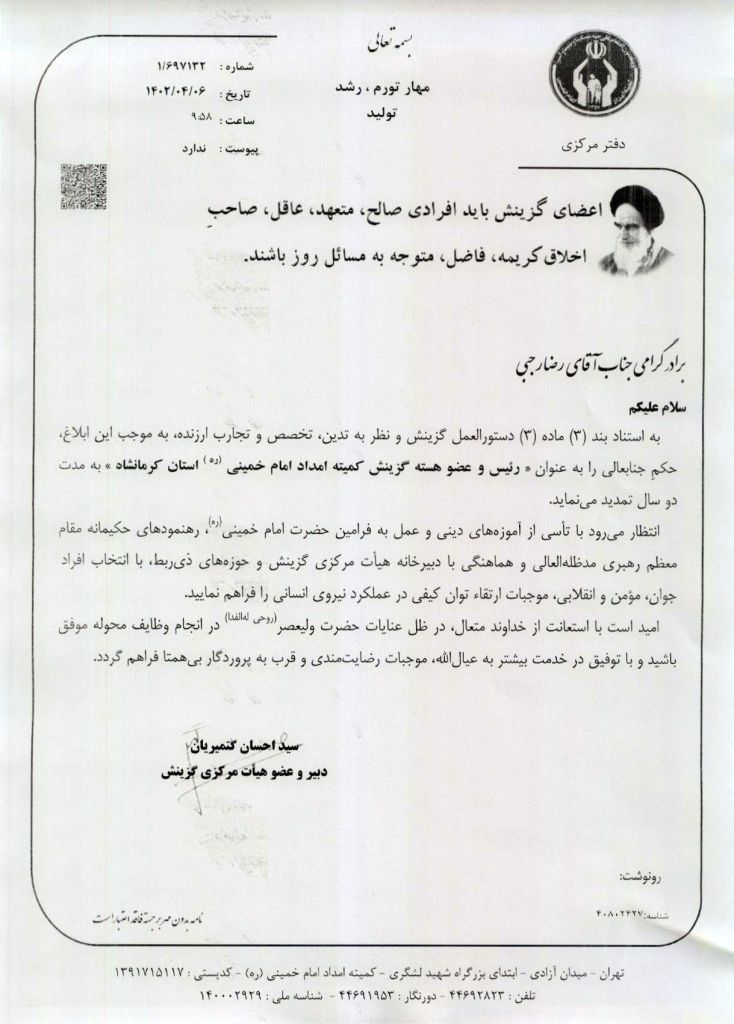 بسمه تعالی
مهار تورم ، رشد
تولید
شماره : ۱/۶۹۷۱۳۲
تاریخ : ۱۴۰۲/۰۴/۰۶
ساعت : ۹:۵۸
پیوست : ندارد
دفتر مرکزی
اعضای گزینش باید افرادی صالح، متعهد، عاقل، صاحبِ
اخلاق کریمه، فاضل، متوجه به مسائل روز باشند.
برادر گرامی جناب آقای رضا رجبی
سلام علیکم
به استناد بند (۳) ماده (۳) دستورالعمل گزینش و نظر به تدین، تخصص و تجارب ارزنده، به موجب این ابلاغ،
حکم جنابعالی را به عنوان « رئیس و عضو هسته گزینش کمیته امداد امام خمینی (ره) استان کرمانشاه » به مدت
دو سال تمدید می‌نماید.
انتظار می‌رود با تأسی از آموزه‌های دینی و عمل به فرامین حضرت امام خمینی(ره)، رهنمودهای حکیمانه مقام
معظم رهبری مدظله‌العالی و هماهنگی با دبیرخانه هیأت مرکزی گزینش و حوزه‌های ذی‌ربط، با انتخاب افراد
جوان، مؤمن و انقلابی، موجبات ارتقاء توان کیفی در عملکرد نیروی انسانی را فراهم نمایید.
امید است با استعانت از خداوند متعال، در ظل عنایات حضرت ولیعصر(روحی له‌الفدا) در انجام وظایف محوله موفق
باشید و با توفیق در خدمت بیشتر به عیال‌الله، موجبات رضایت‌مندی و قرب به پروردگار بی‌همتا فراهم گردد.
سید احسان گتمیریان
دبیر و عضو هیأت مرکزی گزینش
رونوشت:
شناسه:۴۰۸۰۲۴۲۷
نامه بدون مهر برجسته فاقد اعتبار است
تهران - میدان آزادی - ابتدای بزرگراه شهید لشگری - کمیته امداد امام خمینی (ره) - کدپستی : ۱۳۹۱۷۱۵۱۱۷
تلفن : ۴۴۶۹۲۸۲۳ - دورنگار : ۴۴۶۹۱۹۵۳ - شناسه ملی : ۱۴۰۰۰۲۹۲۹